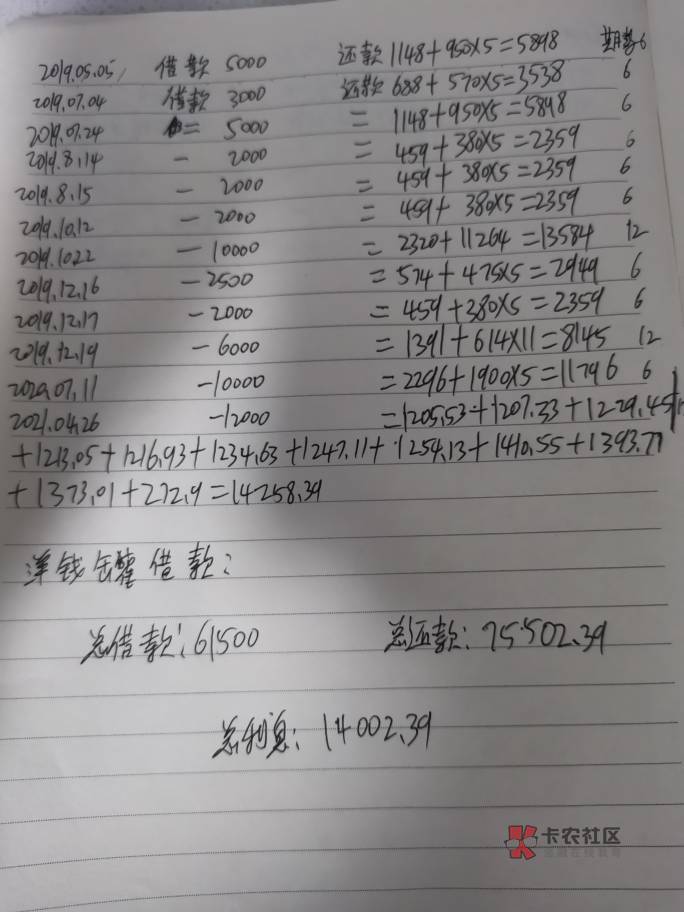 2019.05.05, 借款 5000 还款 1148+950×5=5898 期数6
2019.07.04 借款 3000 还款 688+570×5=3538 6
2019.07.24 = 5000 = 1148+950×5=5898 6
2019.8.14 - 2000 = 459+380×5=2359 6
2019.8.15 - 2000 = 459+380×5=2359 6
2019.10.12 - 2000 = 459+380×5=2359 6
2019.10.22 - 10000 = 2320+11264=13584 12
2019.12.16 - 2500 = 574+475×5=2949 6
2019.12.17 - 2000 = 459+380×5=2359 6
2019.12.19 - 6000 = 1391+614×11=8145 12
2020.07.11 - 10000 = 2296+1900×5=11796 6
2021.04.26 - 12000 = 1205.53+1207.33+1229.45
+1213.05+1216.93+1234.63+1247.11+1254.13+1410.55+1393.77
+1373.01+272.9=14258.39
洋钱罐借款:
总借款:61500 总还款:75502.39
总利息:14002.39
卡农社区